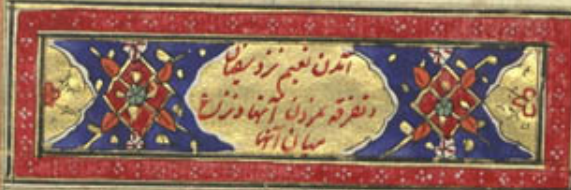 آمدن نعیم نزد سیفان
و تفرقه نمودن آنها و نزاع
میان آنها